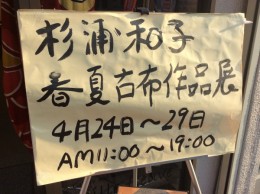 杉浦和子
春夏古布作品展
4月24日～29日
AM11:00～19:00